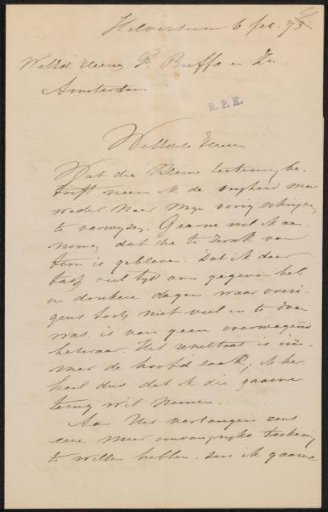 Hilversum 6 feb.
Weled. Heeren F Buffa en Zn
Amsterdam
R. P. K.
Weledele Heeren
Wat die kleine teekening be-
treft neem ik de vrijheid maar
weder naar mijn vorig schrijven
te verwijzen. Gaarne wil ik aan
nemen, dat die te zwak van
toon is gebleven. Dat ik daar
veel tyd aan gegeven heb
in donkere dagen waar overi-
gens toch niet veel in te doen
was is van geen overwegend
belang. Het resultaat is im-
mer de hoofd zaak; ik her
haal dus dat ik die gaarne
terug wil nemen.
Aan Uw verlangen eens
eene meer omvangrijke teekening
te willen hebben, zou ik gaarne